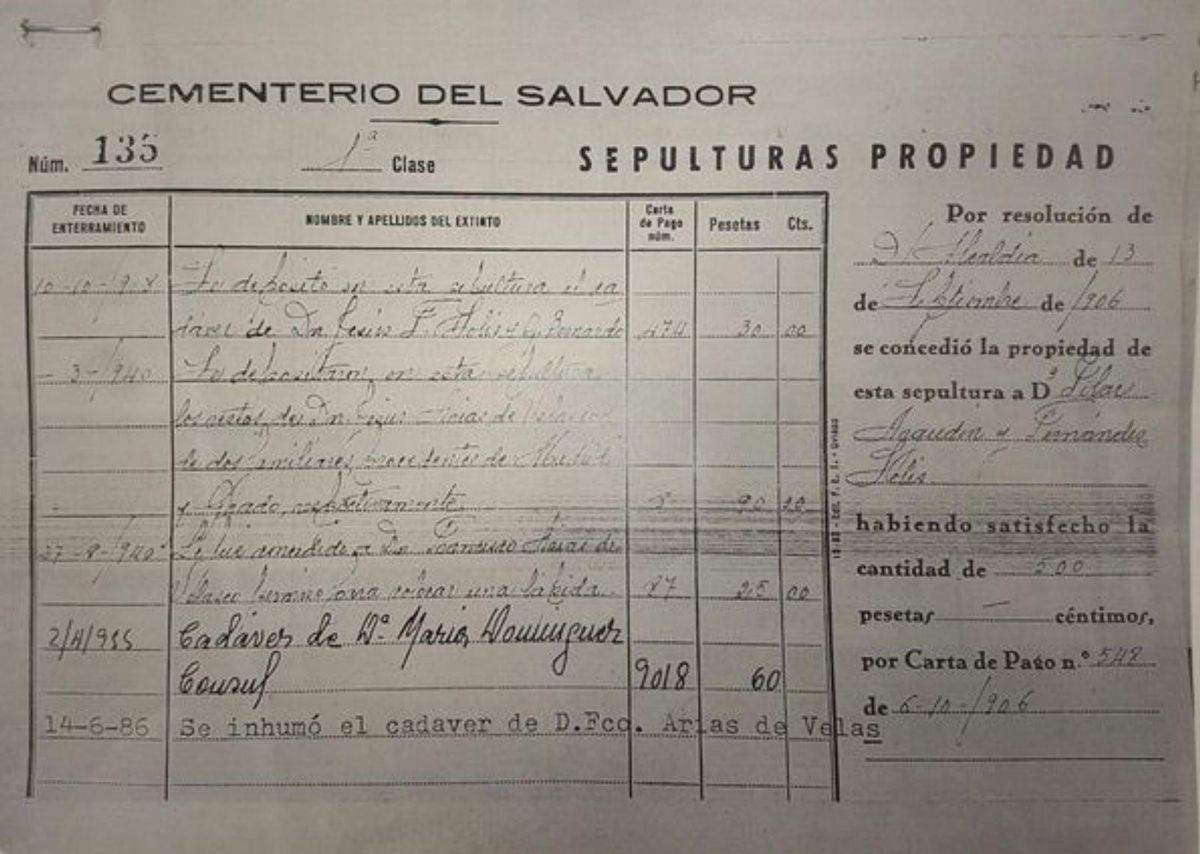 CEMENTERIO DEL SALVADOR
Núm. 135
1ª Clase
SEPULTURAS PROPIEDAD
FECHA DE ENTERRAMIENTO
NOMBRE Y APELLIDOS DEL EXTINTO
Carta de Pago núm.
Pesetas
Cts.
Se depositó en esta sepultura el ca
daver de Dn. Jesús F. Solis y G. Bernardo 274 30 00
- 3 - /940 Se depositaron en esta sepultura
los restos de Dn. Jesús Arias de Velasco
de dos familiares procedentes de Madrid
y Grado, respectivamente. 90
27-8-/940 Le fue concedido a Dn. Francisco Arias de
Velasco permiso para colocar una lápida. 87 25 00
2/4/955 Cadaver de Dª Maria Dominguez
Consul 9018 60
14-6-86 Se inhumó el cadaver de D.Fco. Arias de Velas
Por resolución de
Alcaldía de 13
de Septiembre de /906
se concedió la propiedad de
esta sepultura a Dª Pilar
Agaudin y Fernández
Solis
habiendo satisfecho la
cantidad de 500
pesetas — céntimos,
por Carta de Pago n.º 548
de 6-10-/906